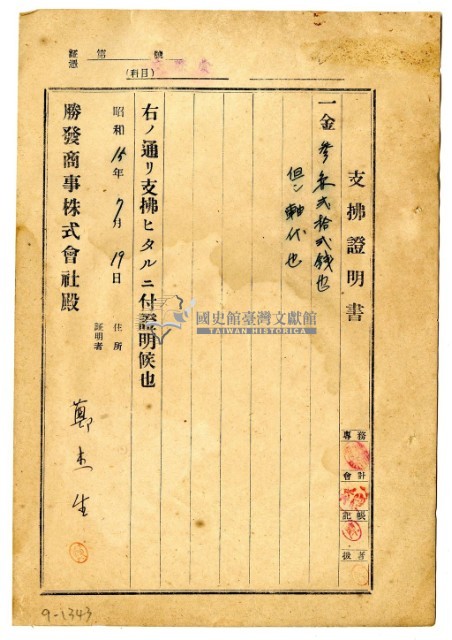 証憑 第 號
(科目)
支拂證明書
一金 參円弐拾弐錢也
但シ 軸代也
右ノ通リ支拂ヒタルニ付證明候也
昭和 15年 7月 19日
住所
証明者
鄭杰生
勝發商事株式會社殿
專務
會計
記帳
扱者
國史館臺灣文獻館
TAIWAN HISTORICA
9-1343